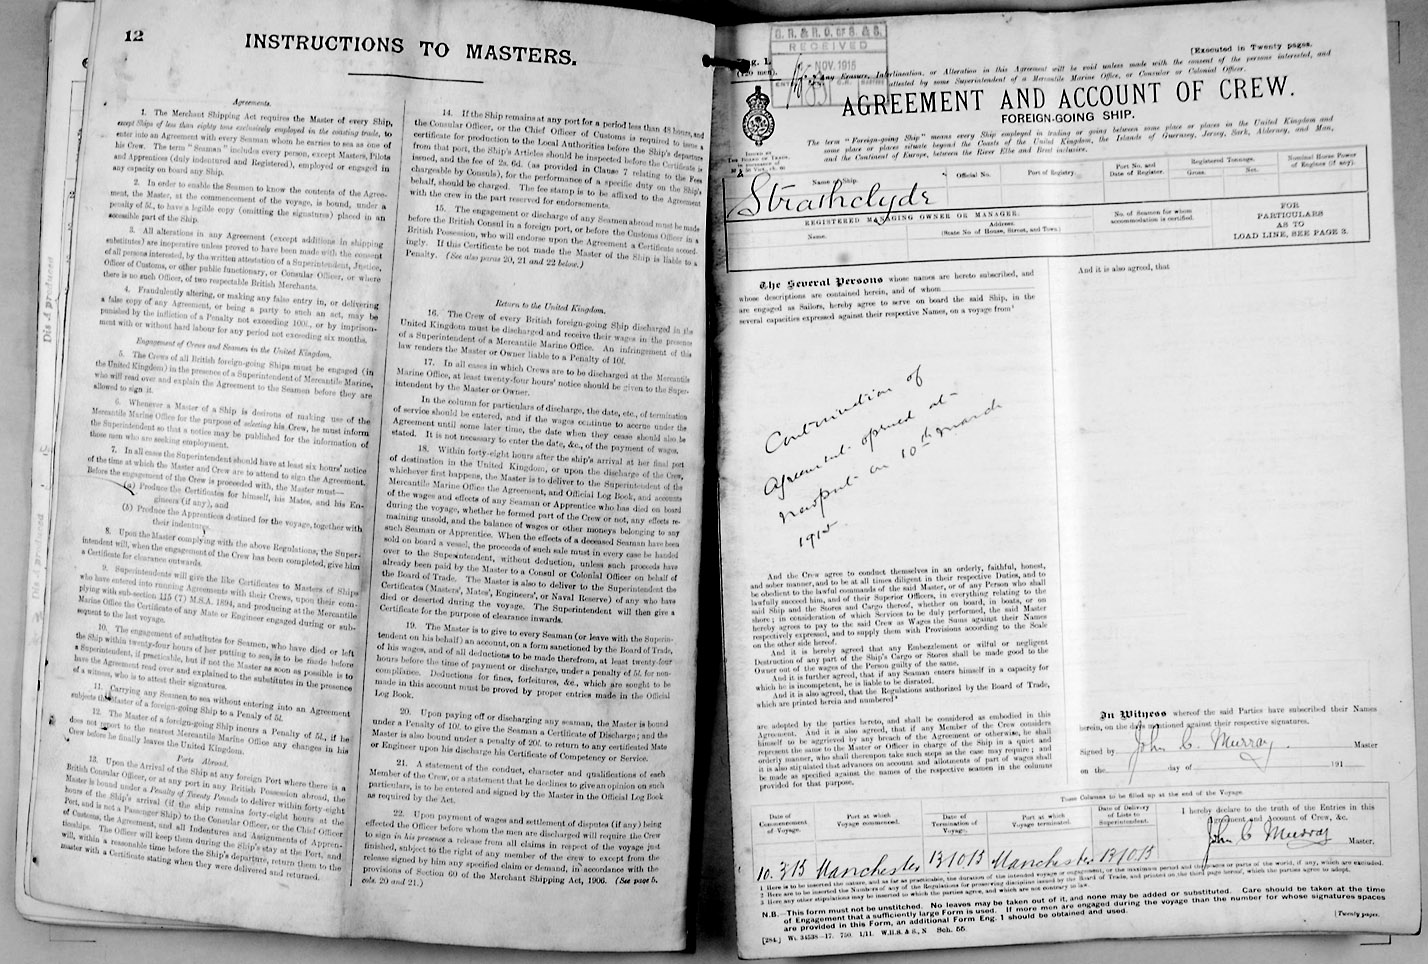 12
INSTRUCTIONS TO MASTERS.
Agreements.
1. The Merchant Shipping Act requires the Master of every Ship,
except Ships of less than eighty tons exclusively employed in the coasting trade, to
enter into an Agreement with every Seaman whom he carries to sea as one of
his Crew. The term "Seaman" includes every person, except Masters, Pilots
and Apprentices (duly indentured and Registered), employed or engaged in
any capacity on board any Ship.
2. In order to enable the Seamen to know the contents of the Agree-
ment, the Master, at the commencement of the voyage, is bound, under a
penalty of 5l., to have a legible copy (omitting the signatures) placed in an
accessible part of the Ship.
3. All alterations in any Agreement (except additions in shipping
substitutes) are inoperative unless proved to have been made with the consent
of all persons interested, by the written attestation of a Superintendent, Justice,
Officer of Customs, or other public functionary, or Consular Officer, or where
there is no such Officer, of two respectable British Merchants.
4. Fraudulently altering, or making any false entry in, or delivering
a false copy of any Agreement, or being a party to such an act, may be
punished by the infliction of a Penalty not exceeding 100l., or by imprison-
ment with or without hard labour for any period not exceeding six months.
Engagement of Crews and Seamen in the United Kingdom.
5. The Crews of all British foreign-going Ships must be engaged (in
the United Kingdom) in the presence of a Superintendent of Mercantile Marine,
who will read over and explain the Agreement to the Seamen before they are
allowed to sign it.
6. Whenever a Master of a Ship is desirous of making use of the
Mercantile Marine Office for the purpose of selecting his Crew, he must inform
the Superintendent so that a notice may be published for the information of
those men who are seeking employment.
7. In all cases the Superintendent should have at least six hours' notice
of the time at which the Master and Crew are to attend to sign the Agreement.
Before the engagement of the Crew is proceeded with, the Master must—
(a) Produce the Certificates for himself, his Mates, and his En-
gineers (if any), and
(b) Produce the Apprentices destined for the voyage, together with
their indentures.
8. Upon the Master complying with the above Regulations, the Super-
intendent will, when the engagement of the Crew has been completed, give him
a Certificate for clearance outwards.
9. Superintendents will give the like Certificates to Masters of Ships
who have entered into running Agreements with their Crews, upon their com-
plying with sub-section 115 (7) M.S.A. 1894, and producing at the Mercantile
Marine Office the Certificate of any Mate or Engineer engaged during or sub-
sequent to the last voyage.
10. The engagement of substitutes for Seamen, who have died or left
the Ship within twenty-four hours of her putting to sea, is to be made before
a Superintendent, if practicable, but if not the Master as soon as possible is to
have the Agreement read over and explained to the substitutes in the presence
of a witness, who is to attest their signatures.
11. Carrying any Seamen to sea without entering into an Agreement
subjects the Master of a foreign-going Ship to a Penalty of 5l.
12. The Master of a foreign-going Ship incurs a Penalty of 5l., if he
does not report to the nearest Mercantile Marine Office any changes in his
Crew before he finally leaves the United Kingdom.
Ports Abroad.
13. Upon the Arrival of the Ship at any foreign Port where there is a
British Consular Officer, or at any port in any British Possession abroad, the
Master is bound under a Penalty of Twenty Pounds to deliver within forty-eight
hours of the Ship's arrival (if the ship remains forty-eight hours at the
Port, and is not a Passenger Ship) to the Consular Officer, or the Chief Officer
of Customs, the Agreement, and all Indentures and Assignments of Appren-
ticeships. The Officer will keep them during the Ship's stay at the Port, and
will, within a reasonable time before the Ship's departure, return them to the
master with a Certificate stating when they were delivered and returned.
14. If the Ship remains at any port for a period less than 48 hours, and
the Consular Officer, or the Chief Officer of Customs is required to issue a
certificate for production to the Local Authorities before the Ship's departure
from that port, the Ship's Articles should be inspected before the Certificate is
issued, and the fee of 2s. 6d. (as provided in Clause 7 relating to the Fees
chargeable by Consuls), for the performance of a specific duty on the Ship's
behalf, should be charged. The fee stamp is to be affixed to the Agreement
with the crew in the part reserved for endorsements.
15. The engagement or discharge of any Seamen abroad must be made
before the British Consul in a foreign port, or before the Customs Officer in a
British Possession, who will endorse upon the Agreement a Certificate accord-
ingly. If this Certificate be not made the Master of the Ship is liable to a
Penalty. (See also paras 20, 21 and 22 below.)
Return to the United Kingdom.
16. The Crew of every British foreign-going Ship discharged in the
United Kingdom must be discharged and receive their wages in the presence
of a Superintendent of a Mercantile Marine Office. An infringement of this
law renders the Master or Owner liable to a Penalty of 10l.
17. In all cases in which Crews are to be discharged at the Mercantile
Marine Office, at least twenty-four hours' notice should be given to the Super-
intendent by the Master or Owner.
In the column for particulars of discharge, the date, etc., of termination
of service should be entered, and if the wages continue to accrue under the
Agreement until some later time, the date when they cease should also be
stated. It is not necessary to enter the date, &c., of the payment of wages.
18. Within forty-eight hours after the ship's arrival at her final port
of destination in the United Kingdom, or upon the discharge of the Crew,
whichever first happens, the Master is to deliver to the Superintendent of the
Mercantile Marine Office the Agreement, and Official Log Book, and accounts
of the wages and effects of any Seaman or Apprentice who has died on board
during the voyage, whether he formed part of the Crew or not, any effects re-
maining unsold, and the balance of wages or other moneys belonging to any
such Seaman or Apprentice. When the effects of a deceased Seaman have been
sold on board a vessel, the proceeds of such sale must in every case be handed
over to the Superintendent, without deduction, unless such proceeds have
already been paid by the Master to a Consul or Colonial Officer on behalf of
the Board of Trade. The Master is also to deliver to the Superintendent the
Certificates (Masters', Mates', Engineers', or Naval Reserve) of any who have
died or deserted during the voyage. The Superintendent will then give a
Certificate for the purpose of clearance inwards.
19. The Master is to give to every Seaman (or leave with the Superin-
tendent on his behalf) an account, on a form sanctioned by the Board of Trade,
of his wages, and of all deductions to be made therefrom, at least twenty-four
hours before the time of payment or discharge, under a penalty of 5l. for non-
compliance. Deductions for fines, forfeitures, &c., which are sought to be
made in this account must be proved by proper entries made in the Official
Log Book.
20. Upon paying off or discharging any seaman, the Master is bound
under a Penalty of 10l. to give the Seaman a Certificate of Discharge; and the
Master is also bound under a penalty of 20l. to return to any certificated Mate
or Engineer upon his discharge his Certificate of Competency or Service.
21. A statement of the conduct, character and qualifications of each
Member of the Crew, or a statement that he declines to give an opinion on such
particulars, is to be entered and signed by the Master in the Official Log Book
as required by the Act.
22. Upon payment of wages and settlement of disputes (if any) being
effected the Officer before whom the men are discharged will require the Crew
to sign in his presence a release from all claims in respect of the voyage just
finished, subject to the right of any member of the crew to except from the
release signed by him any specified claim or demand, in accordance with the
provisions of Section 60 of the Merchant Shipping Act, 1906. (See page b.
cols. 20 and 21.)
G. R. & R. O. OF S. & S.
RECEIVED
NOV. 1915
[Executed in Twenty pages.
Any Erasure, Interlineation, or Alteration in this Agreement will be void unless made with the consent of the persons interested, and
attested by some Superintendent of a Mercantile Marine Office, or Consular or Colonial Officer.
AGREEMENT AND ACCOUNT OF CREW.
FOREIGN-GOING SHIP.
The term "Foreign-going Ship" means every Ship employed in trading or going between some place or places in the United Kingdom and
some place or places situate beyond the Coasts of the United Kingdom, the Islands of Guernsey, Jersey, Sark, Alderney, and Man,
and the Continent of Europe, between the River Elbe and Brest inclusive.
ISSUED BY
THE BOARD OF TRADE,
Name of Ship. Official No. Port of Registry. Port No. and Date of Register. Registered Tonnage. Gross. Net. Nominal Horse Power of Engines (if any).
Strathclyde
REGISTERED MANAGING OWNER OR MANAGER.
Name. Address. (State No of House, Street, and Town.)
No. of Seamen for whom accommodation is certified.
FOR
PARTICULARS
AS TO
LOAD LINE, SEE PAGE 3.
The Several Persons whose names are hereto subscribed, and
whose descriptions are contained herein, and of whom
are engaged as Sailors, hereby agree to serve on board the said Ship, in the
several capacities expressed against their respective Names, on a voyage from
And it is also agreed, that
Continuation of
Agreement opened at
Newport on 10th March
1915
And the Crew agree to conduct themselves in an orderly, faithful, honest,
and sober manner, and to be at all times diligent in their respective Duties, and to
be obedient to the lawful commands of the said Master, or of any Person who shall
lawfully succeed him, and of their Superior Officers, in everything relating to the
said Ship and the Stores and Cargo thereof, whether on board, in boats, or on
shore; in consideration of which Services to be duly performed, the said Master
hereby agrees to pay to the said Crew as Wages the Sums against their Names
respectively expressed, and to supply them with Provisions according to the Scale
on the other side hereof.
And it is hereby agreed that any Embezzlement or wilful or negligent
Destruction of any part of the Ship's Cargo or Stores shall be made good to the
Owner out of the wages of the Person guilty of the same.
And it is further agreed, that if any Seaman enters himself in a capacity for
which he is incompetent, he is liable to be disrated.
And it is also agreed, that the Regulations authorized by the Board of Trade,
which are printed herein and numbered
are adopted by the parties hereto, and shall be considered as embodied in this
Agreement. And it is also agreed, that if any Member of the Crew considers
himself to be aggrieved by any breach of the Agreement or otherwise, he shall
represent the same to the Master or Officer in charge of the Ship in a quiet and
orderly manner, who shall thereupon take such steps as the case may require; and
it is also stipulated that advances on account and allotments of part of wages shall
be made as specified against the names of the respective seamen in the columns
provided for that purpose.
In Witness whereof the said Parties have subscribed their Names
herein, on the days mentioned against their respective signatures.
Signed by John C. Murray. Master
on the day of 191
These Columns to be filled up at the end of the Voyage.
Date of Commencement of Voyage. Port at which Voyage commenced. Date of Termination of Voyage. Port at which Voyage terminated. Date of Delivery of Lists to Superintendent.
I hereby declare to the truth of the Entries in this
Agreement and Account of Crew, &c.
John C Murray Master.
10.3.15 Manchester 13.10.15 Manchester 13.10.15
1 Here is to be inserted the nature, and as far as practicable, the duration of the intended voyage or engagement, or the maximum period and the places or parts of the world, if any, which are excluded.
2 Here are to be inserted the Numbers of any of the Regulations for preserving discipline issued by the Board of Trade, and printed on the third page hereof, which the parties agree to adopt.
3 Here any other stipulations may be inserted to which the parties agree, and which are not contrary to law.
N.B.—This form must not be unstitched. No leaves may be taken out of it, and none may be added or substituted. Care should be taken at the time
of Engagement that a sufficiently large Form is used. If more men are engaged during the voyage than the number for whose signatures spaces
are provided in this Form, an additional Form Eng. 1 should be obtained and used.
[284.] Wt. 34538—17. 750. 1/11. W.H.S. & S., N Sch. 55.
[Twenty pages.